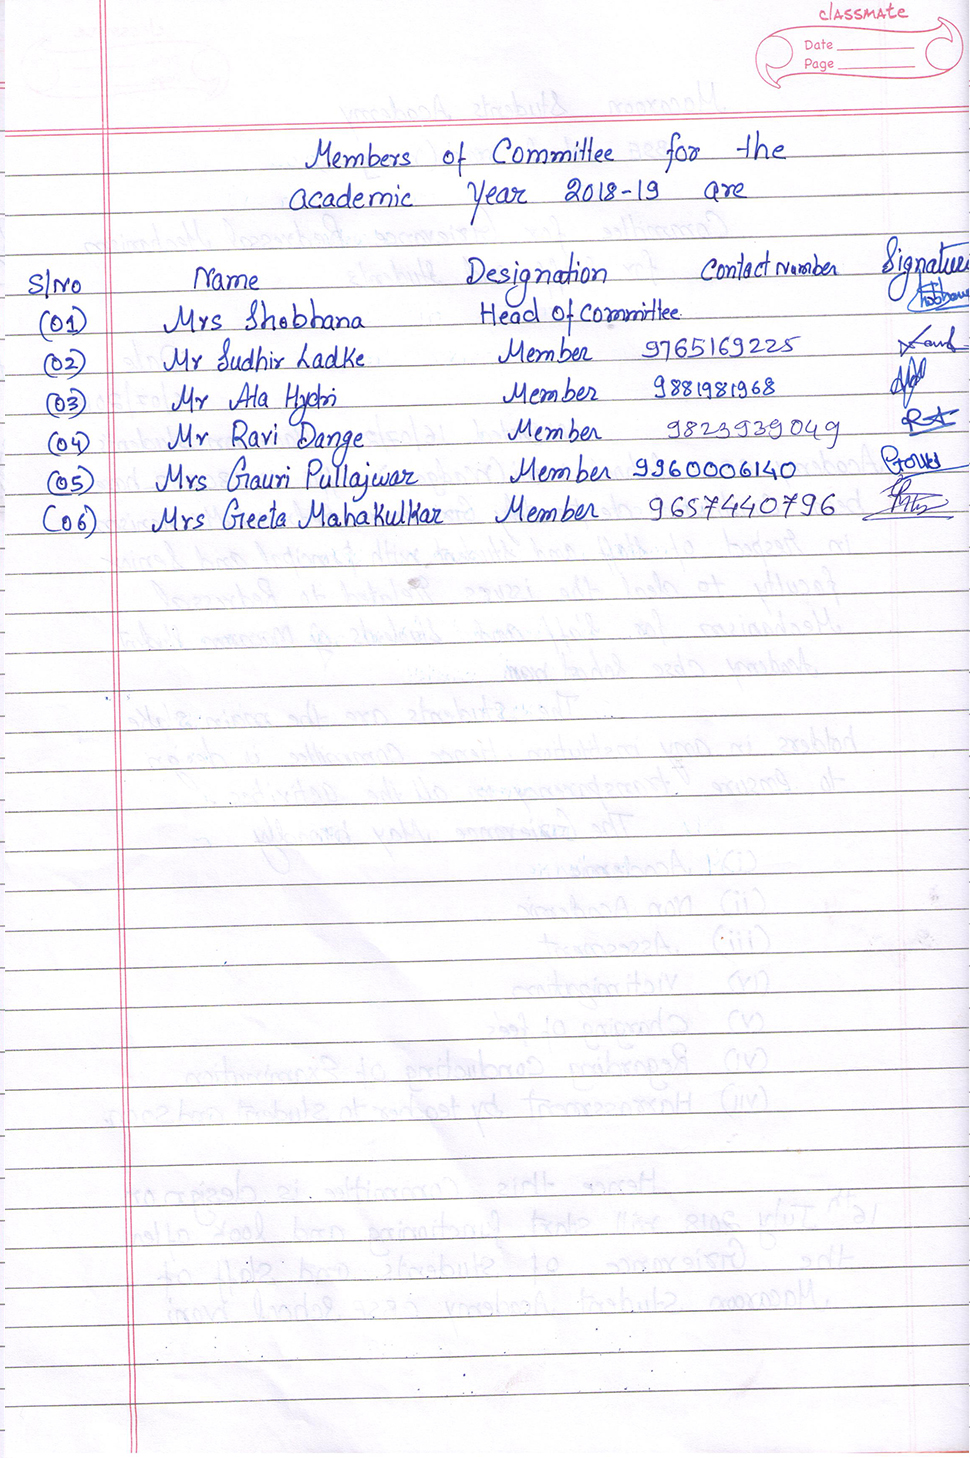 classmate
Date
Page
Members of Committee for the
academic Year 2018-19 are
S/No Name Designation Contact Number Signature
(01) Mrs Shobhana Head of Committee
(02) Mr Sudhir Ladke Member 9765169225
(03) Mr Ata Hydri Member 9881981968
(04) Mr Ravi Dange Member 9823939049
(05) Mrs Gauri Pullajwar Member 9960006140
(06) Mrs Geeta Mahakulkar Member 9657440796